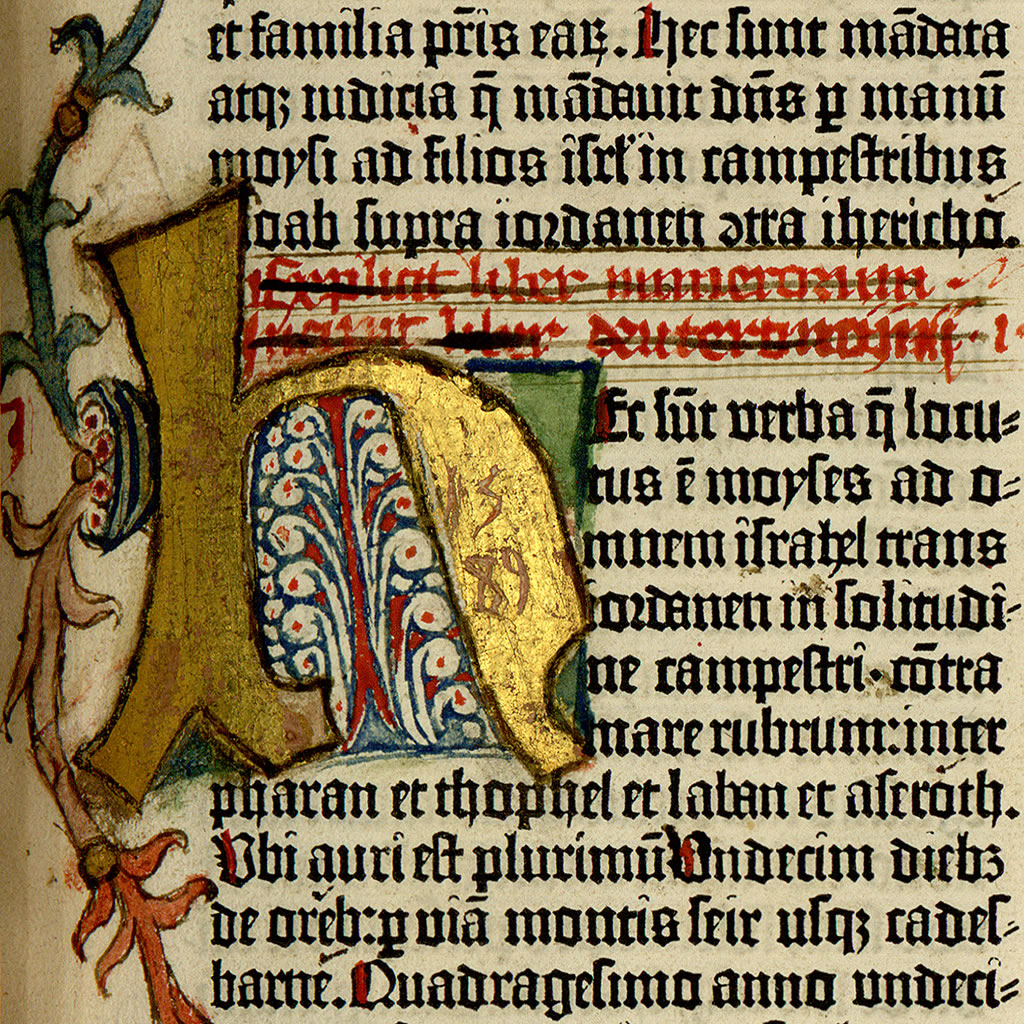 et familia pr̄is eaꝝ. Hec sunt mādata
atqꝫ iudicia q̄ mādauit dn̄s ꝑ manū
moysi ad filios iſrl' in campestribus
moab supra iordanen ꝯtra ihericho.
Explicit liber numerorum
Incipit liber deuteronomij
Ec sūt verba q̄ locu⸗
tus ē moyses ad o⸗
mnem israhel trans
iordanen in solitudī⸗
ne campestri. cōtra
mare rubrum: inter
pharan et thophel et laban et aseroth.
Vbi auri est plurimū Vndecim diebꝫ
de oreb: ꝑ viā montis seir usqꝫ cades⸗
barne. Quadragesimo anno undeci⸗
15
89